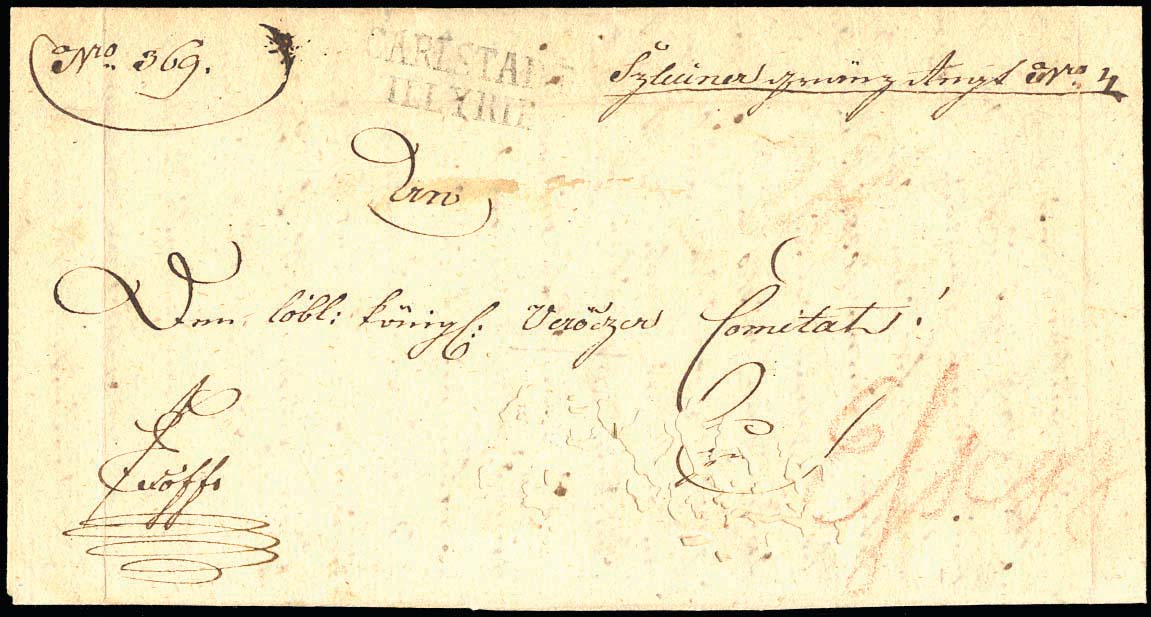 Nro 369.
CARLSTADT
ILLYRIE
Szluiner gränz Rngt Nro 4
An
Den löbl: königl: Verőczer Comitat!
zu
Essegg